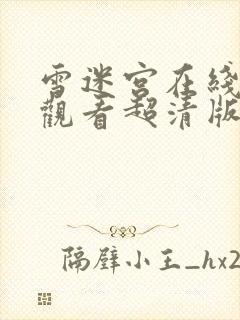 雪迷宮在綫
觀看超清版
隔壁小王_hx2